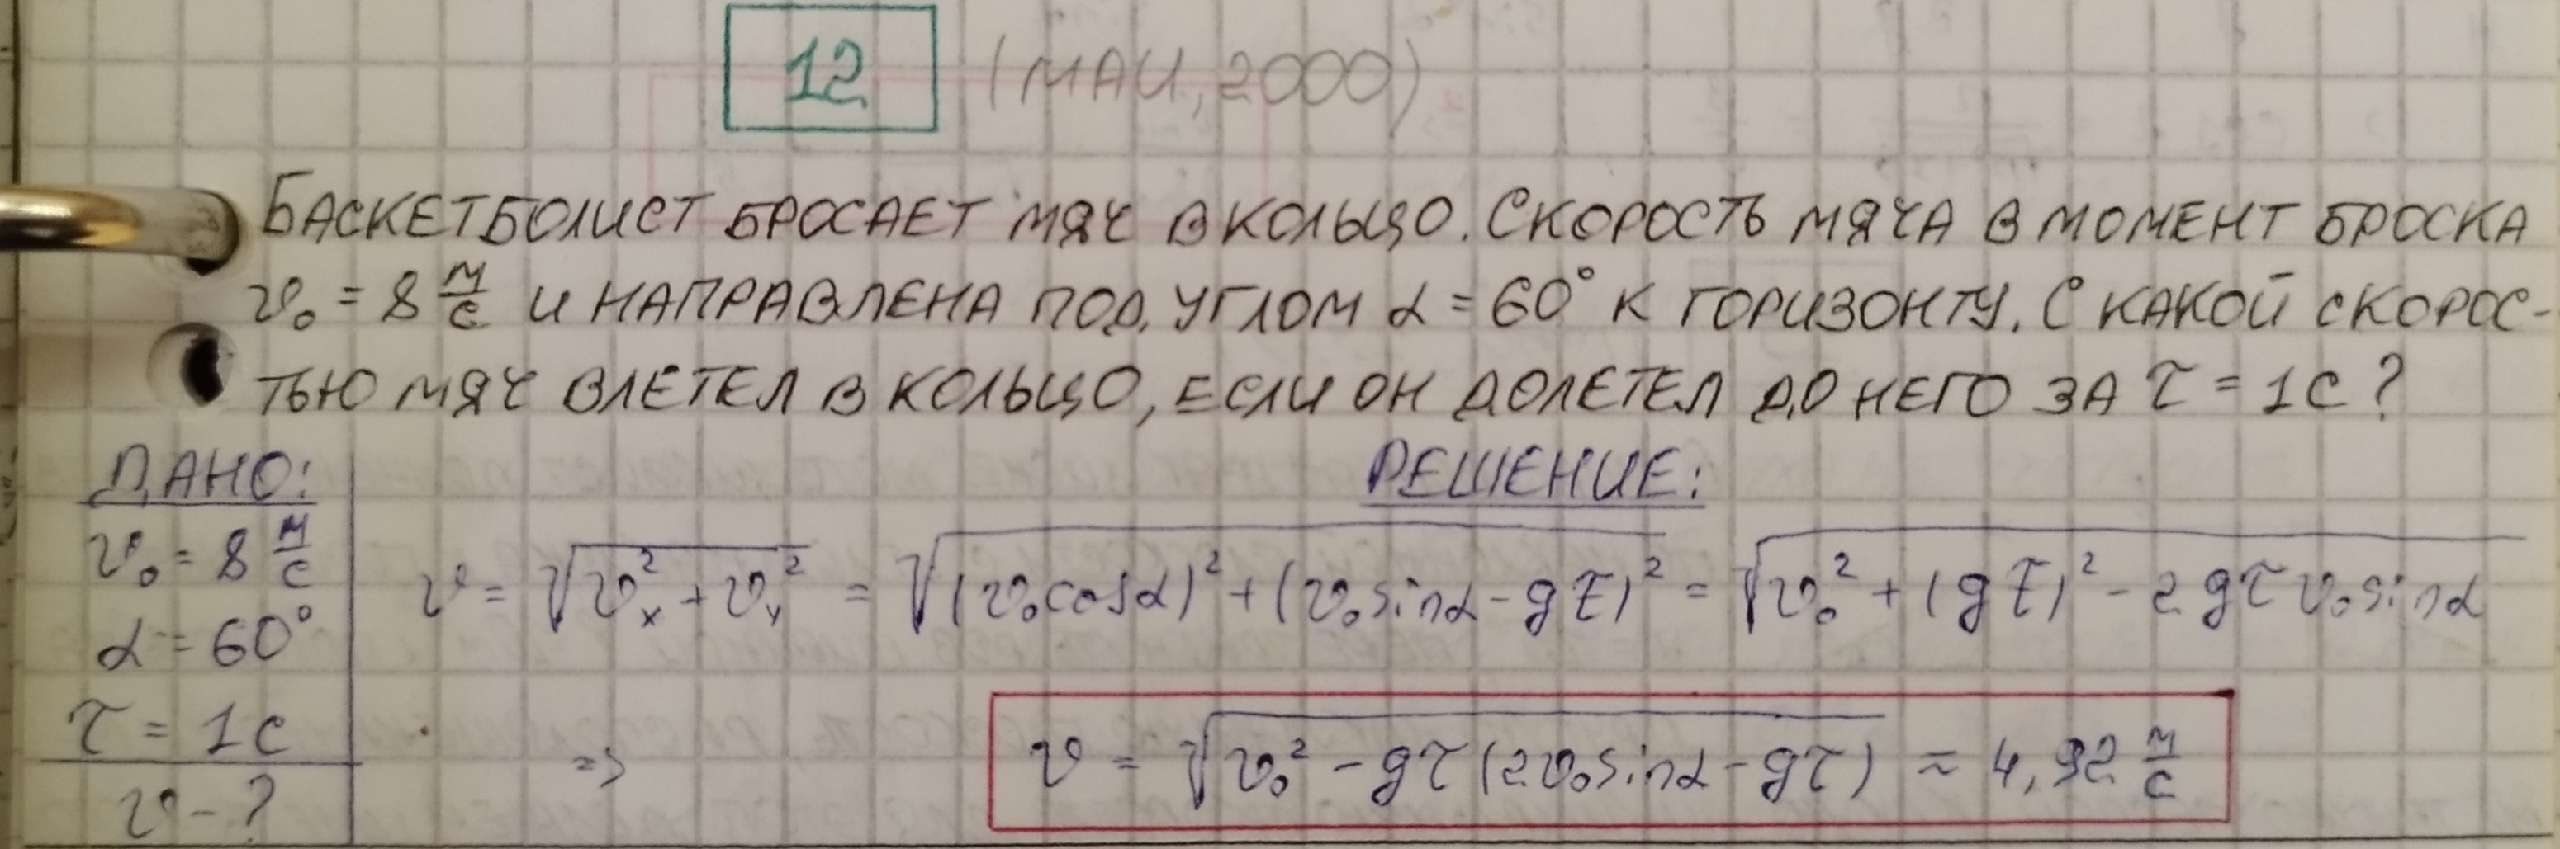 12 (МАИ, 2000)
БАСКЕТБОЛИСТ БРОСАЕТ МЯЧ В КОЛЬЦО. СКОРОСТЬ МЯЧА В МОМЕНТ БРОСКА
v₀ = 8 м/с И НАПРАВЛЕНА ПОД УГЛОМ α = 60° К ГОРИЗОНТУ. С КАКОЙ СКОРОС-
ТЬЮ МЯЧ ВЛЕТЕЛ В КОЛЬЦО, ЕСЛИ ОН ДОЛЕТЕЛ ДО НЕГО ЗА τ = 1С?
ДАНО:
v₀ = 8 м/с
α = 60°
τ = 1с
v - ?
РЕШЕНИЕ:
v = √(vₓ² + vᵧ²) = √((v₀cosα)² + (v₀sinα - gτ)²) = √(v₀² + (gτ)² - 2gτv₀sinα)
=> v = √(v₀² - gτ(2v₀sinα - gτ)) ≈ 4,92 м/с